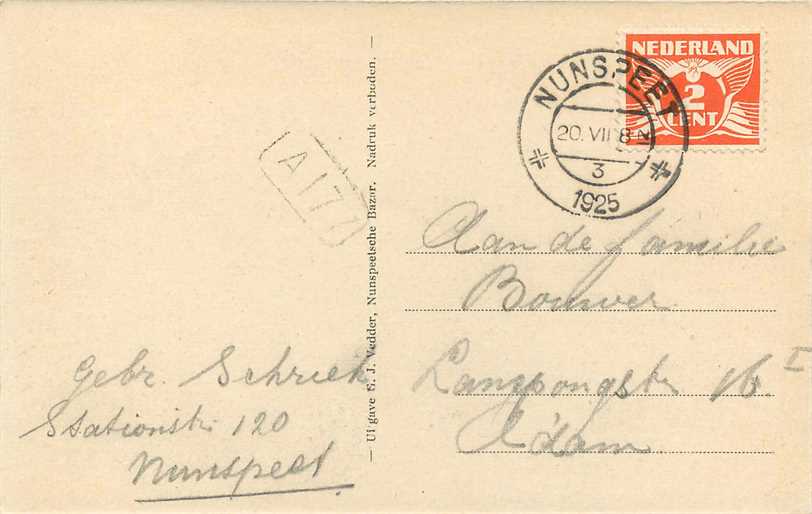 NEDERLAND
2
CENT
NUNSPEET
20. VII 8-N
3
1925
A 171
Uitgave G. J. Vedder, Nunspeetsche Bazar. Nadruk verboden.
Aan de familie
Bouwer
16 I
A'dam
Gebr. Schriek
Stationstr 120
Nunspeet